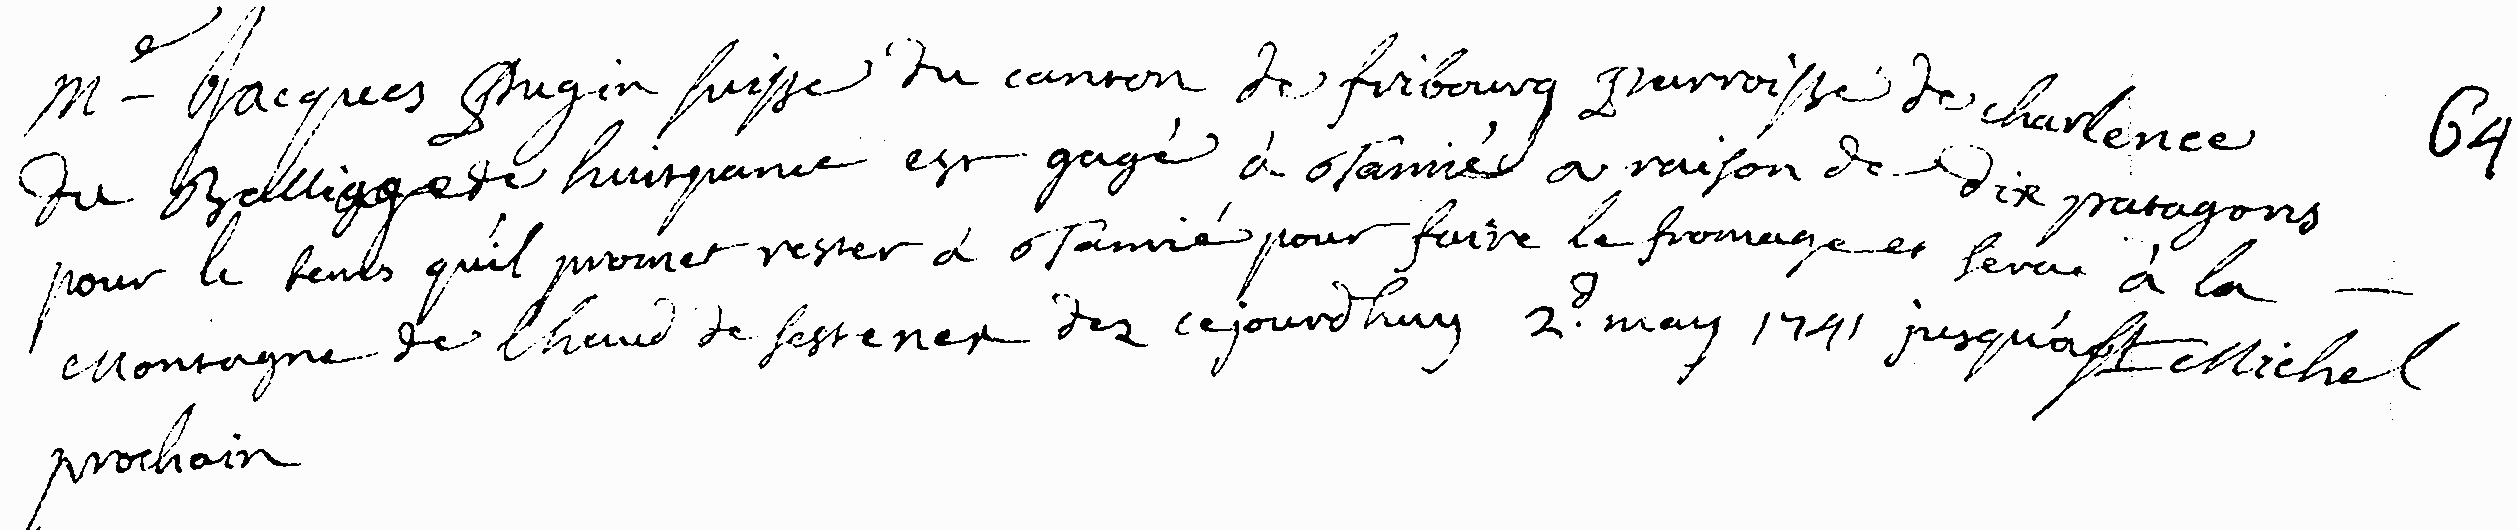 Me Jacques Bugin suisse du canton de fribourg Parroisse de charlence 64
du Balliagge de huitpance est gagé à Tamié a raison de dix patagons
pour le tems qu'il promet rester à Tamié pour faire le fromage et serac à la
Montagne de lhaud de sestenex dez cejourdhuy 2d. may 1741 jusqu'a st Michel
prochain